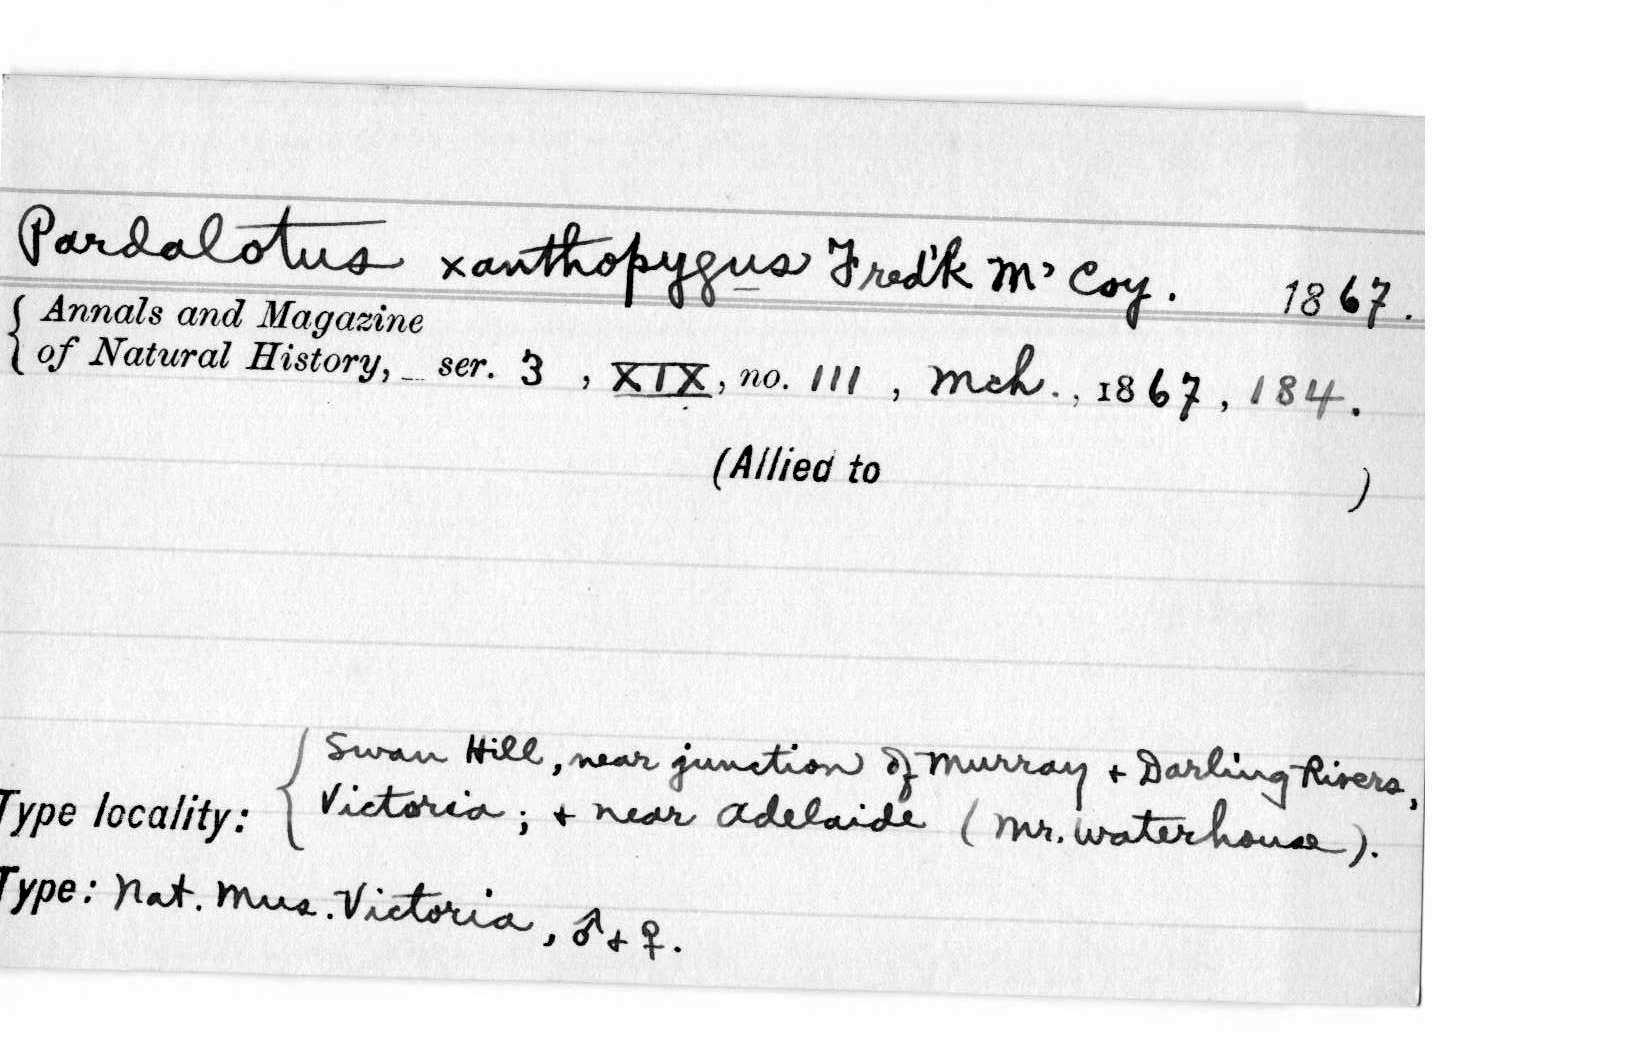 Pardalotus xanthopygus Fred'k M'Coy. 1867.
Annals and Magazine
of Natural History, ser. 3, XIX, no. 111, Mch., 1867, 184.
(Allied to )
Type locality: Swan Hill, near junction of Murray + Darling Rivers,
Victoria; + near Adelaide (Mr. Waterhouse).
Type: Nat. Mus. Victoria, ♂ + ♀.